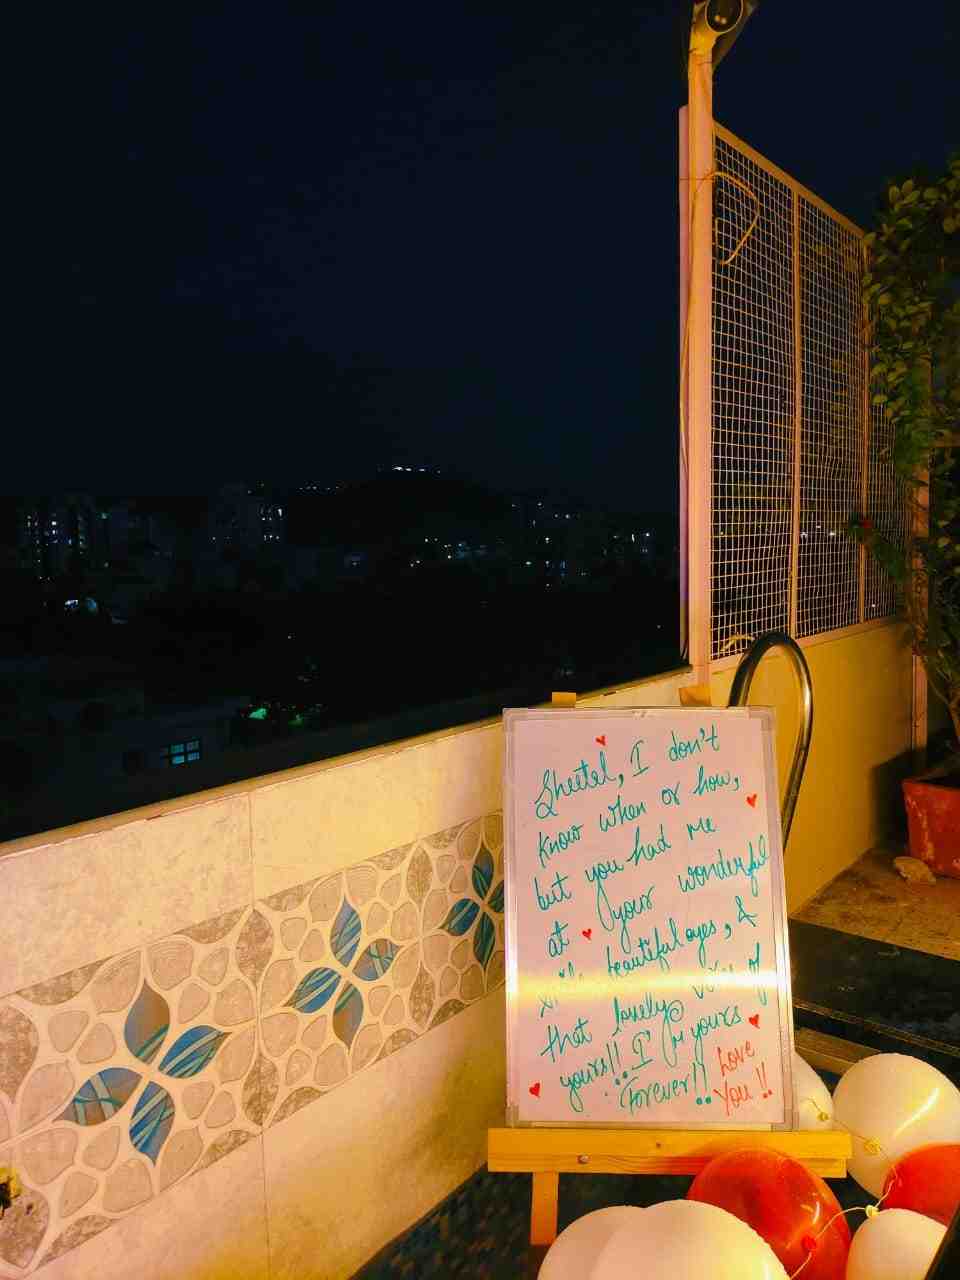 Sheetal, I don't
know when or how,
but you had me
at your wonderful
smile, beautiful eyes, &
that lovely voice of
yours!! I'm yours
Forever!! Love
You !!